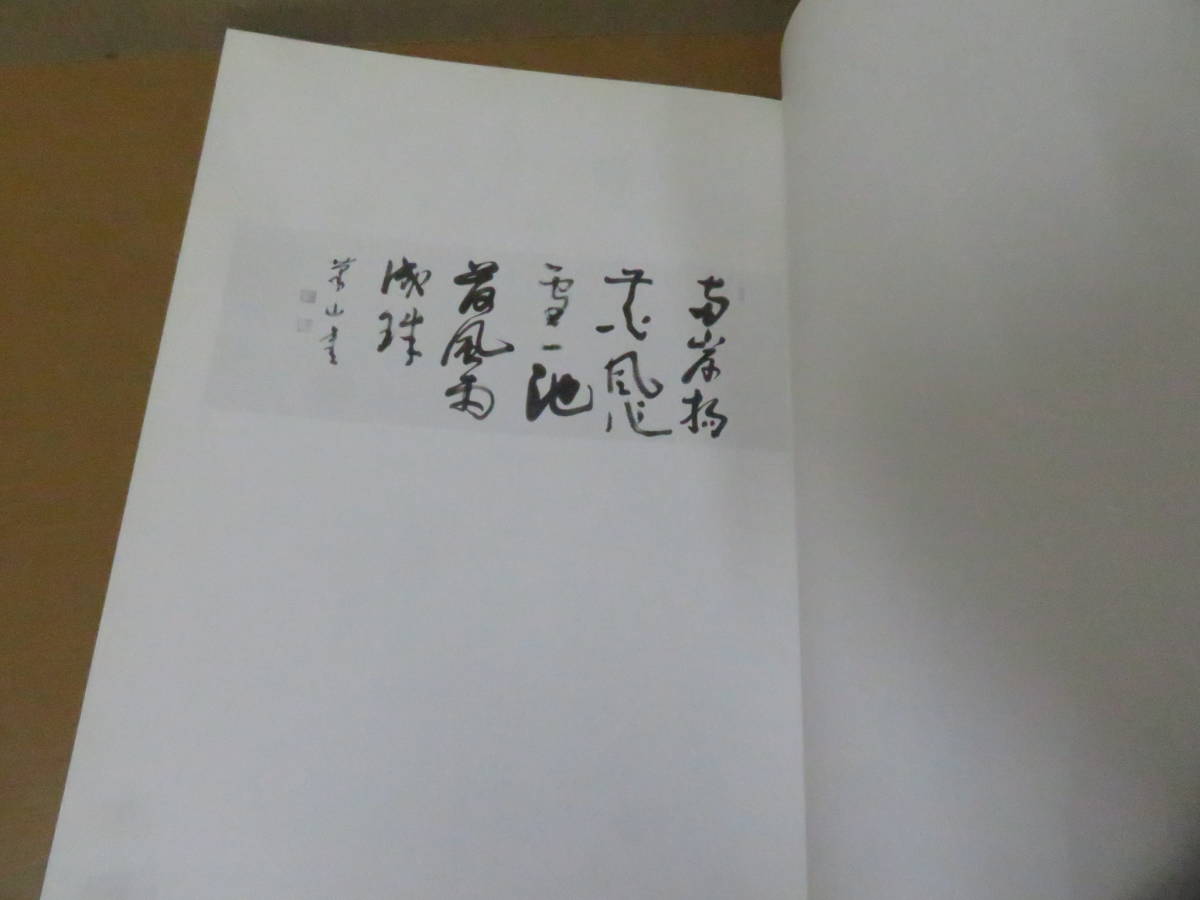 兩岸楊
花風作
雪一池
荷風雨
成珠
山書